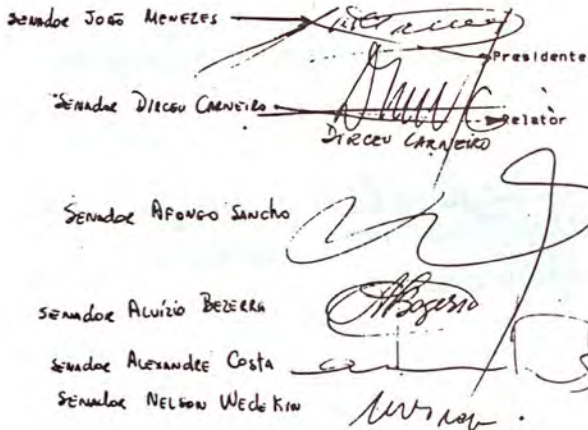 SENADOR JOÃO MENEZES
Presidente
SENADOR DIRCEU CARNEIRO
Relator
DIRCEU CARNEIRO
SENADOR AFONSO SANCHO
SENADOR ALUÍZIO BEZERRA
SENADOR ALEXANDRE COSTA
SENADOR NELSON WEDEKIN